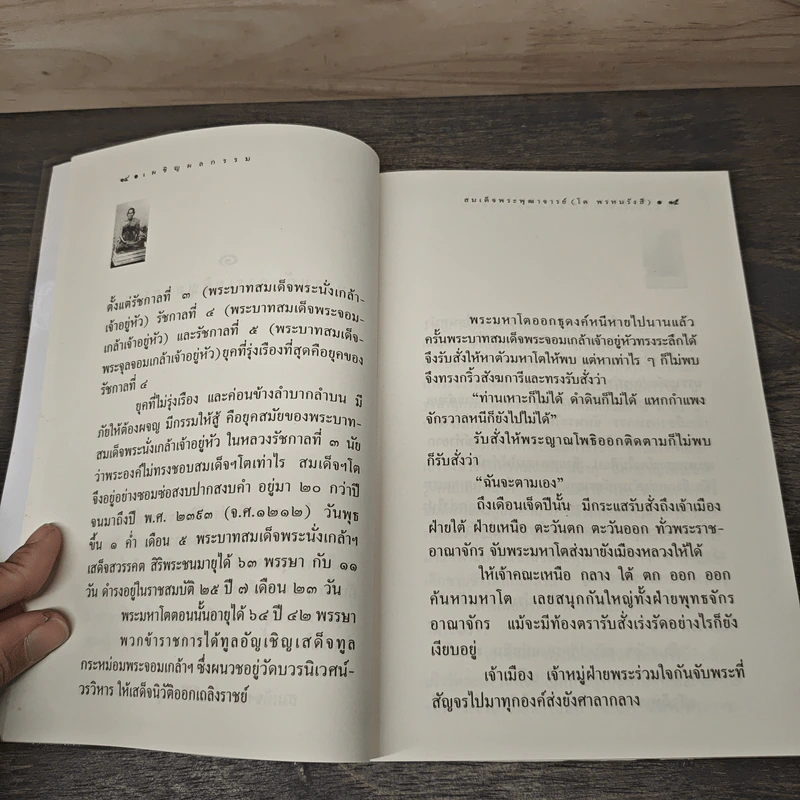 ๑๔ • เผชิญผลกรรม
ตั้งแต่รัชกาลที่ ๓ (พระบาทสมเด็จพระนั่งเกล้า-
เจ้าอยู่หัว) รัชกาลที่ ๔ (พระบาทสมเด็จพระจอม-
เกล้าเจ้าอยู่หัว) และรัชกาลที่ ๕ (พระบาทสมเด็จ-
พระจุลจอมเกล้าเจ้าอยู่หัว)ยุคที่รุ่งเรืองที่สุดคือยุคของ
รัชกาลที่ ๔
ยุคที่ไม่รุ่งเรือง และค่อนข้างลำบากลำบน มี
ภัยให้ต้องผจญ มีกรรมให้สู้ คือยุคสมัยของพระบาท-
สมเด็จพระนั่งเกล้าเจ้าอยู่หัว ในหลวงรัชกาลที่ ๓ นัย
ว่าพระองค์ไม่ทรงชอบสมเด็จฯโตเท่าไร สมเด็จฯโต
จึงอยู่อย่างซอมซ่อสงบปากสงบคำ อยู่มา ๒๐ กว่าปี
จนมาถึงปี พ.ศ. ๒๓๙๓ (จ.ศ.๑๒๑๒) วันพุธ
ขึ้น ๑ ค่ำ เดือน ๕ พระบาทสมเด็จพระนั่งเกล้าฯ
เสด็จสวรรคต สิริพระชนมายุได้ ๖๓ พรรษา กับ ๑๑
วัน ดำรงอยู่ในราชสมบัติ ๒๕ ปี ๗ เดือน ๒๓ วัน
พระมหาโตตอนนั้นอายุได้ ๖๔ ปี ๔๒ พรรษา
พวกข้าราชการได้ทูลอัญเชิญเสด็จทูล
กระหม่อมพระจอมเกล้าฯ ซึ่งผนวชอยู่วัดบวรนิเวศน์-
วรวิหาร ให้เสด็จนิวัติออกเถลิงราชย์
สมเด็จพระพุฒาจารย์ (โต พรหมรังสี) • ๑๕
พระมหาโตออกธุดงค์หนีหายไปนานแล้ว
ครั้นพระบาทสมเด็จพระจอมเกล้าเจ้าอยู่หัวทรงระลึกได้
จึงรับสั่งให้หาตัวมหาโตให้พบ แต่หาเท่าไร ๆ ก็ไม่พบ
จึงทรงกริ้วสังฆการีและทรงรับสั่งว่า
“ท่านเหาะก็ไม่ได้ ดำดินก็ไม่ได้ แหกกำแพง
จักรวาลหนีก็ยังไปไม่ได้”
รับสั่งให้พระญาณโพธิออกติดตามก็ไม่พบ
ก็รับสั่งว่า
“ฉันจะตามเอง”
ถึงเดือนเจ็ดปีนั้น มีกระแสรับสั่งถึงเจ้าเมือง
ฝ่ายใต้ ฝ่ายเหนือ ตะวันตก ตะวันออก ทั่วพระราช-
อาณาจักร จับพระมหาโตส่งมายังเมืองหลวงให้ได้
ให้เจ้าคณะเหนือ กลาง ใต้ ตก ออก ออก
ค้นหามหาโต เลยสนุกกันใหญ่ทั้งฝ่ายพุทธจักร
อาณาจักร แม้จะมีท้องตรารับสั่งเร่งรัดอย่างไรก็ยัง
เงียบอยู่
เจ้าเมือง เจ้าหมู่ฝ่ายพระร่วมใจกันจับพระที่
สัญจรไปมาทุกองค์ส่งยังศาลากลาง